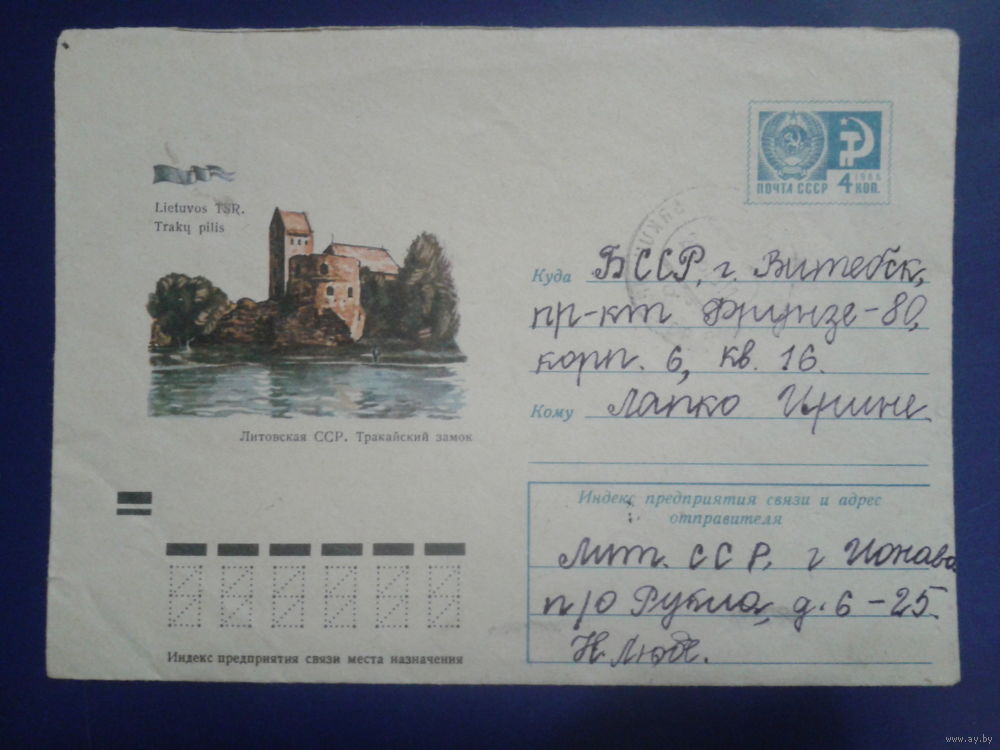 ПОЧТА СССР
1966
4 КОП.
Lietuvos TSR.
Trakų pilis
Литовская ССР. Тракайский замок
Куда БССР, г. Витебск,
пр-кт Фрунзе-80,
корп. 6, кв. 16.
Кому Лапко Ирине
Индекс предприятия связи и адрес
отправителя
Лит. ССР, г Ионава
п/о Рукла, д. 6-25.
Индекс предприятия связи места назначения
www.ay.by